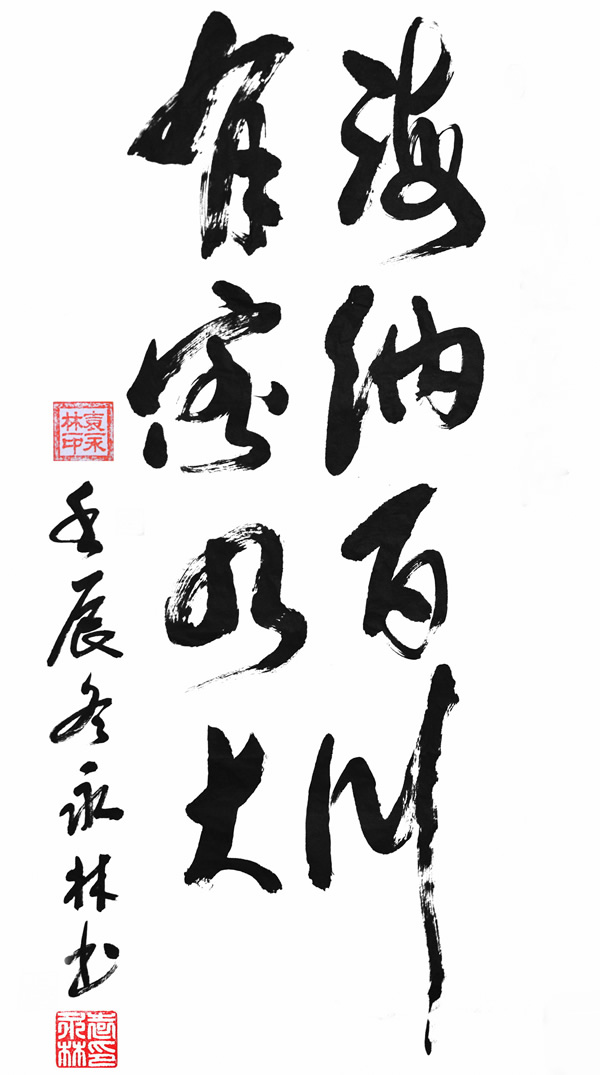 海纳百川
有容乃大
壬辰冬永林书
袁永林印
袁印永林